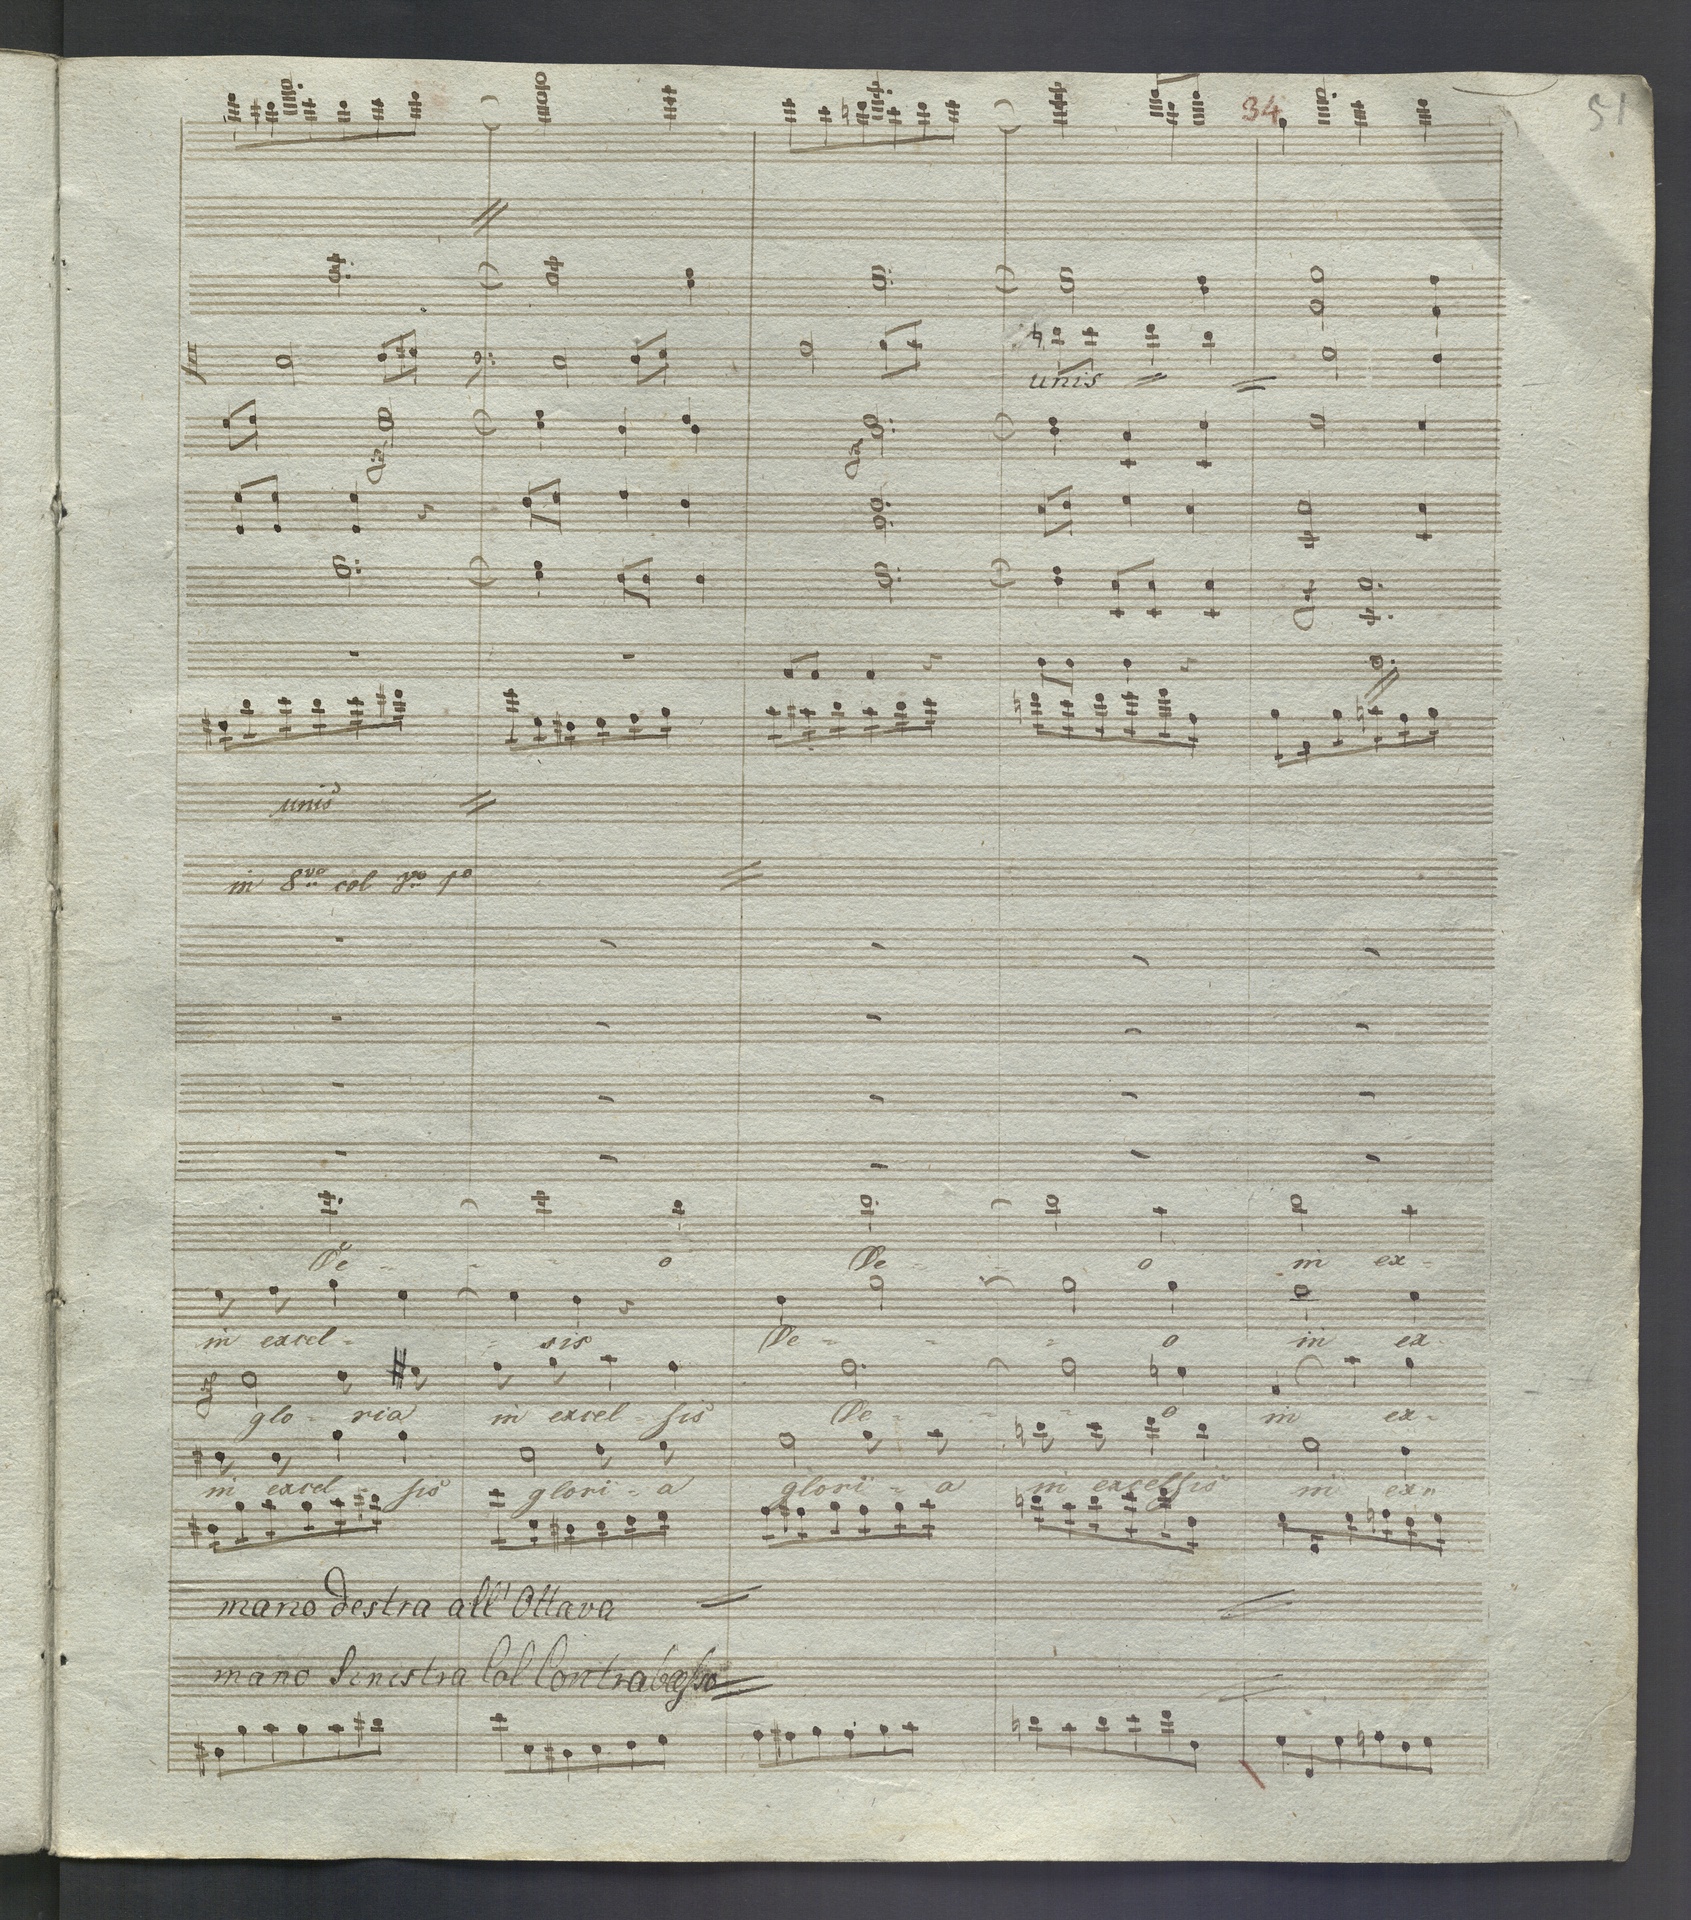 34 51
unis
unis
in 8vo col Vno 1o
De - - - o De - - - o in ex -
in excel - - sis De - - - o in ex -
glo - ria in excel - sis De - - - o in ex -
in excel sis glori - a glori - a in excelsis in ex
mano destra all' Ottava
mano Sinistra Col Contrabasso